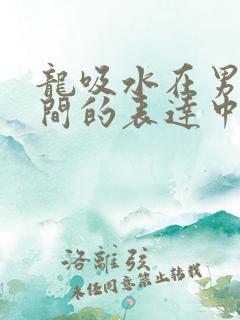 龍吸水在男
間的表達中
洛離弦
未經同意禁止轉載